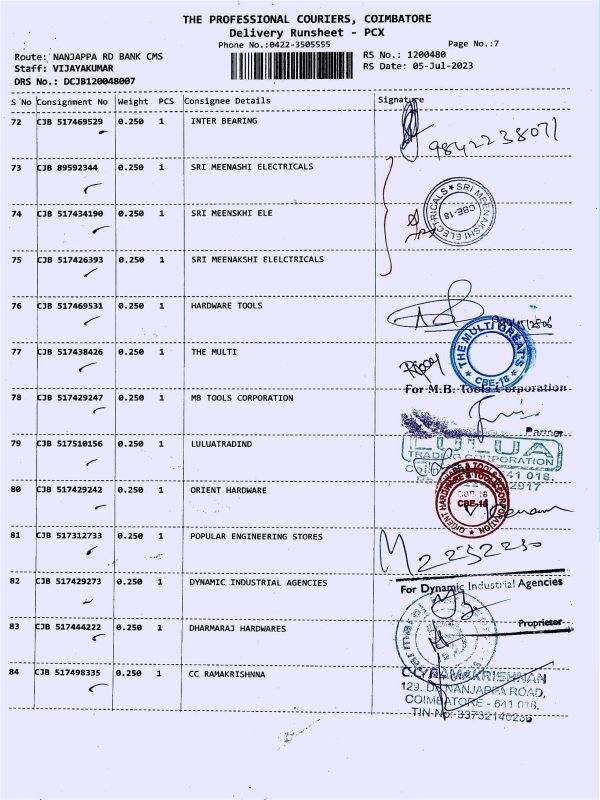 THE PROFESSIONAL COURIERS, COIMBATORE
Delivery Runsheet - PCX
Phone No.:0422-3505555
Page No.:7
Route: NANJAPPA RD BANK CMS
RS No.: 1200480
Staff: VIJAYAKUMAR
RS Date: 05-Jul-2023
DRS No.: DCJB120048007
S No Consignment No Weight PCS Consignee Details Signature
72 CJB 517469529 0.250 1 INTER BEARING
9842238071
73 CJB 89592344 0.250 1 SRI MEENASHI ELECTRICALS
SRI MEENAKSHI ELECTRICALS CBE-18
74 CJB 517434190 0.250 1 SRI MEENSKHI ELE
75 CJB 517426393 0.250 1 SRI MEENAKSHI ELELCTRICALS
76 CJB 517469531 0.250 1 HARDWARE TOOLS
77 CJB 517438426 0.250 1 THE MULTI
THE MULTI GREAT'S CBE-18
For M.B. Tools Corporation
78 CJB 517429247 0.250 1 MB TOOLS CORPORATION
Partner
79 CJB 517510156 0.250 1 LULUATRADIND
LULUA
TRADING CORPORATION
641 018.
2917
80 CJB 517429242 0.250 1 ORIENT HARDWARE
ORIENT HARDWARE & TOOLS CORPORATION CBE-18
81 CJB 517312733 0.250 1 POPULAR ENGINEERING STORES
2232230
82 CJB 517429273 0.250 1 DYNAMIC INDUSTRIAL AGENCIES
For Dynamic Industrial Agencies
Proprietor
83 CJB 517444222 0.250 1 DHARMARAJ HARDWARES
84 CJB 517498335 0.250 1 CC RAMAKRISHNNA
C.C. RAMAKRISHNAN
129, DR. NANJAPPA ROAD,
COIMBATORE - 641 018.
TIN No: 33732140286